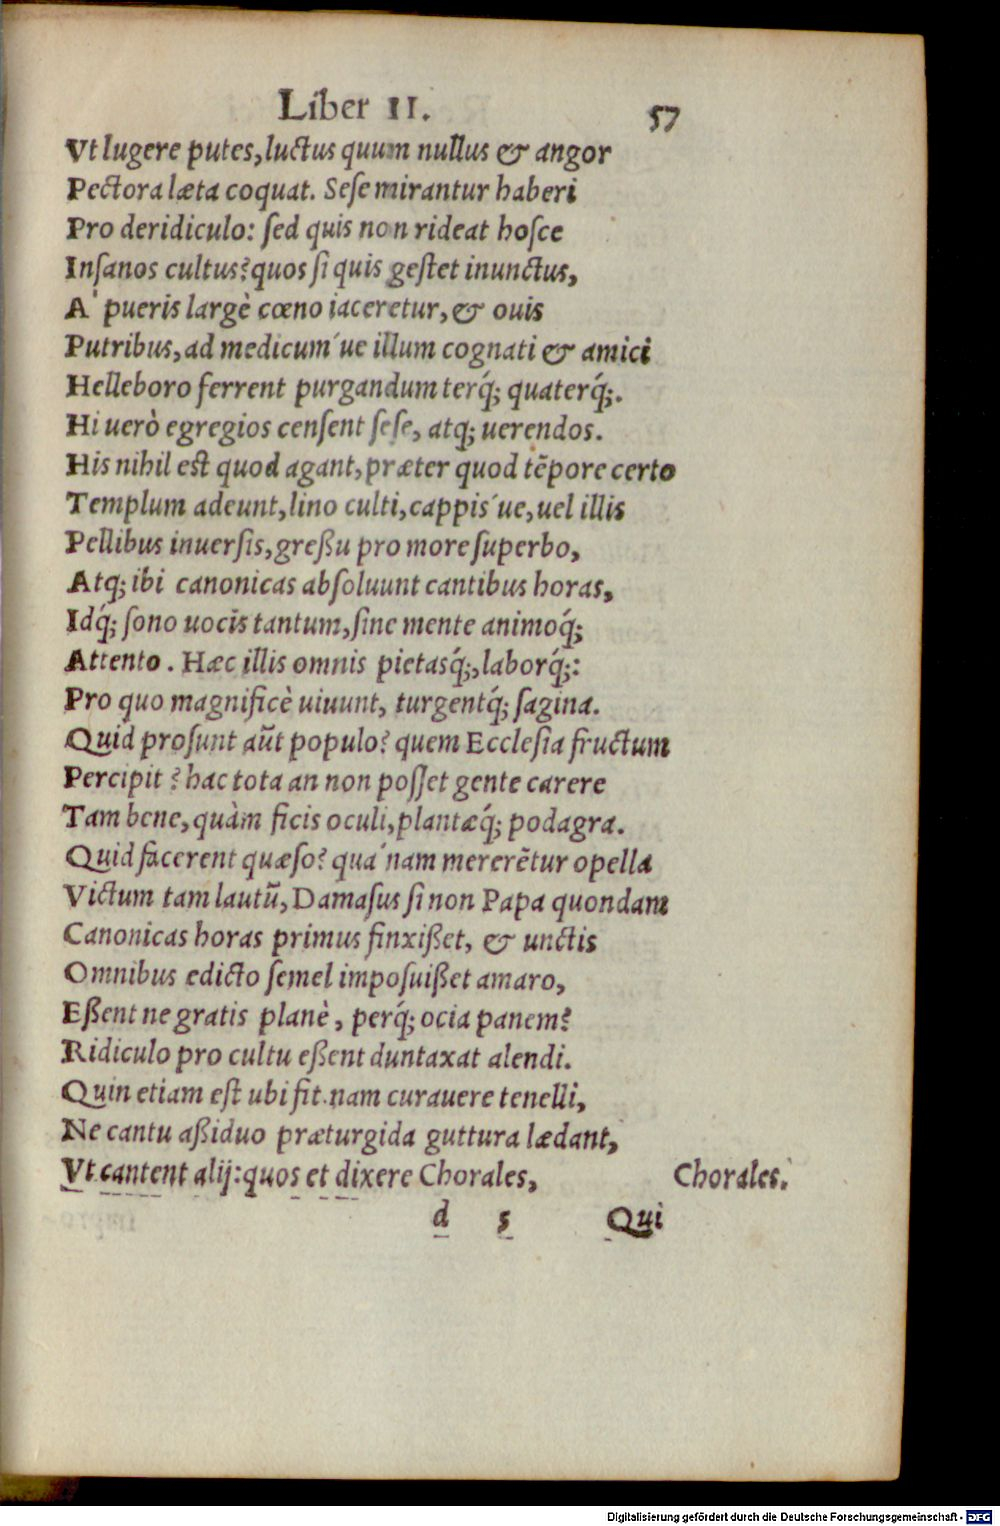 Liber II. 57
Vt lugere putes, luctus quum nullus & angor
Pectora læta coquat. Sese mirantur haberi
Pro deridiculo: sed quis non rideat hosce
Insanos cultus? quos si quis gestet inunctus,
A' pueris largè cœno iaceretur, & ouis
Putribus, ad medicum´ue illum cognati & amici
Helleboro ferrent purgandum terq́; quaterq́;.
Hi uerò egregios censent sese, atq; uerendos.
His nihil est quod agant, præter quod tẽpore certo
Templum adeunt, lino culti, cappis´ue, uel illis
Pellibus inuersis, greßu pro more superbo,
Atq; ibi canonicas absoluunt cantibus horas,
Idq́; sono uocis tantum, sine mente animoq́;
Attento. Hæc illis omnis pietasq́;, laborq́;:
Pro quo magnificè uiuunt, turgentq́; sagina.
Quid prosunt aũt populo? quem Ecclesia fructum
Percipit? hac tota an non posset gente carere
Tam bene, quàm ficis oculi, plantæq́; podagra.
Quid facerent quæso? qua´nam mererẽtur opella
Victum tam lautũ, Damasus si non Papa quondam
Canonicas horas primus finxißet, & unctis
Omnibus edicto semel imposuißet amaro,
Eßent ne gratis planè, perq́; ocia panem?
Ridiculo pro cultu eßent duntaxat alendi.
Quin etiam est ubi fit. nam curauere tenelli,
Ne cantu aßiduo præturgida guttura lædant,
Vt cantent alij: quos et dixere Chorales, Chorales.
d 5 Qui
Digitalisierung gefördert durch die Deutsche Forschungsgemeinschaft - DFG